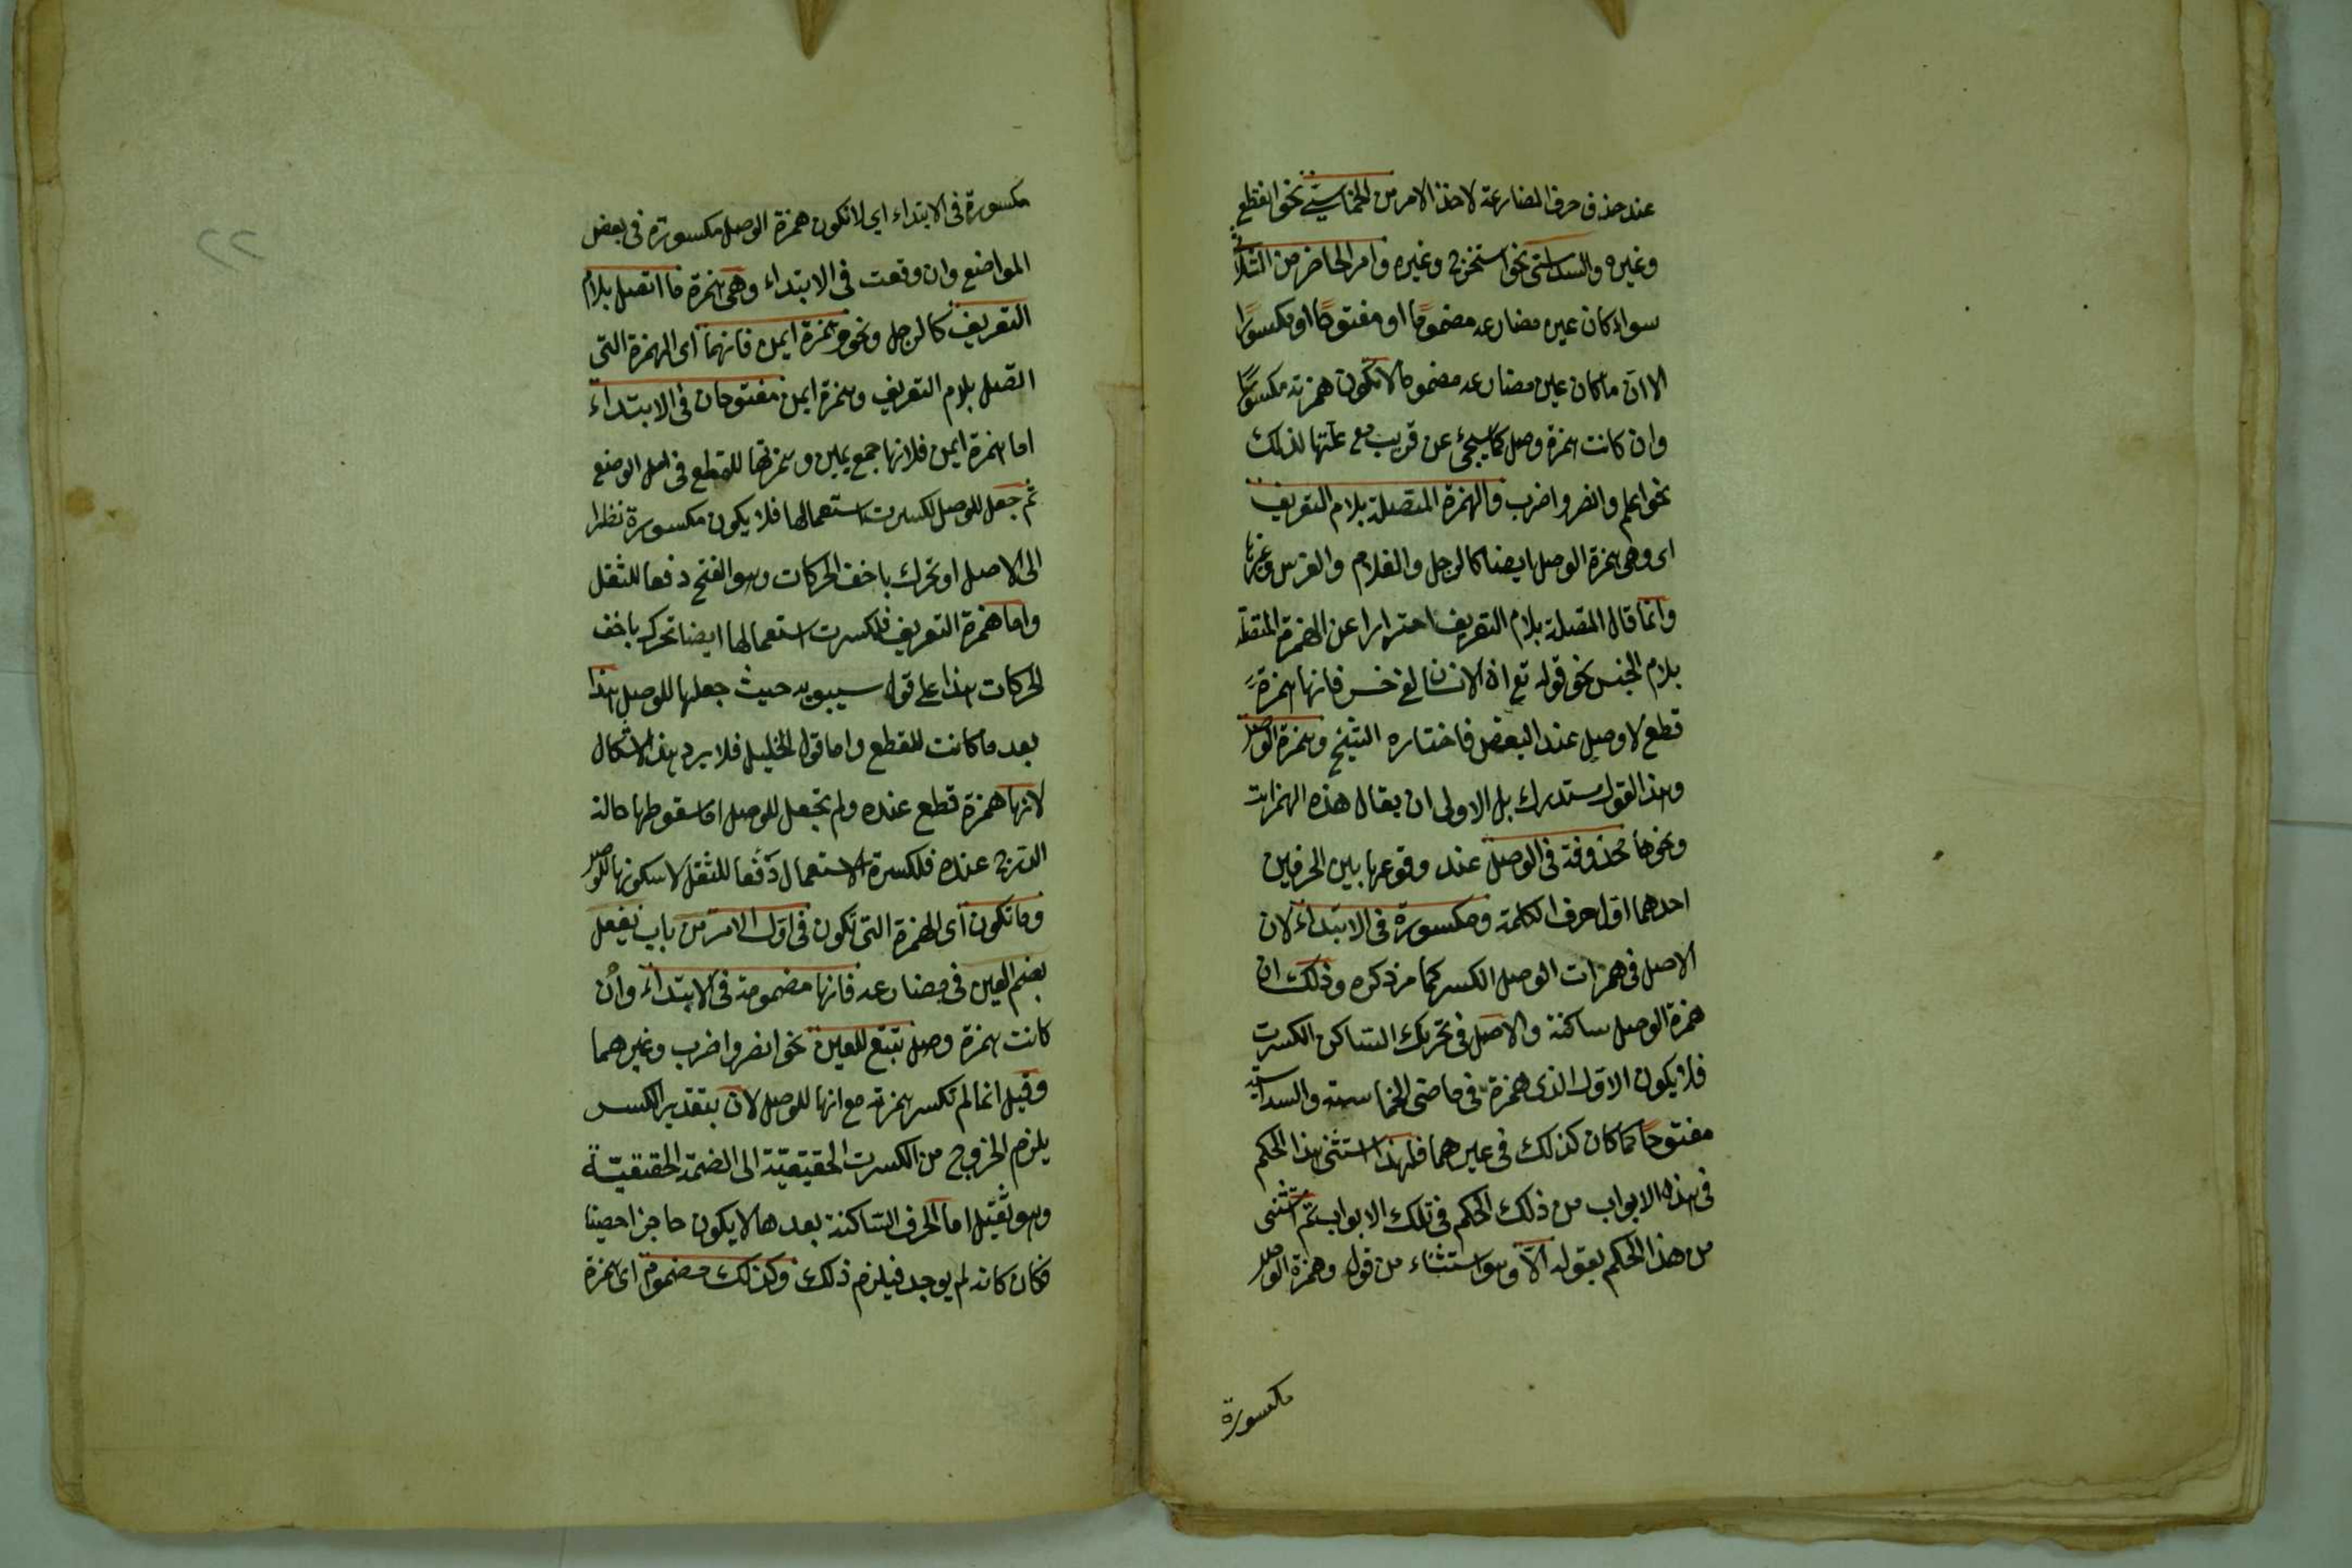 عند حذف حرف المضارعة لاخذ الامر من الخماسى نحو انقطع
وغيره والسداسى نحو استخرج وغيره وامر الحاضر من الثلاثى
سواء كان عين مضارعه مضموما او مفتوحا او مكسورا
الا ان ما كان عين مضارعه مضموما لا تكون همزته مكسورا
وان كانت همزة وصل كما سيجئ عن قريب مع علتها لذلك
نحو اعلم وانصر واضرب والهمزة المتصلة بلام التعريف
اى وهى همزة الوصل ايضا كالرجل والغلام والفرس وغيرها
وانما قال المتصلة بلام التعريف احترازا عن الهمزة المتصلة
بلام الجنس نحو قوله تع ان الانسان لفى خسر فانها همزة
قطع لا وصل عند البعض فاختاره الشيخ وهمزة الوصل
وهذا القول مستدرك بل الاولى ان يقال هذه الهمزات
ونحوها محذوفة فى الوصل عند وقوعها بين الحرفين
احدهما اول حرف الكلمة ومكسورة فى الابتداء لان
الاصل فى همزات الوصل الكسر كما مر ذكره وذلك ان
همزة الوصل ساكنة والاصل فى تحريك الساكن الكسرت
فلا يكون الاول الذى همزة فى ماضى الخماسية والسداسية
مفتوحا كما كان كذلك فى غيرهما فلهذا استثنى هذا الحكم
فى هذه الابواب من ذلك الحكم فى تلك الابواب ثم استثنى
من هذا الحكم بقوله الا وهو استثناء من قوله وهمزة الوصل
مكسورة
مكسورة فى الابتداء اى لا تكون همزة الوصل مكسورة فى بعض
المواضع وان وقعت فى الابتداء وهى همزة ما اتصل بلام
التعريف كالرجل ونحو همزة ايمن فانهما اى الهمزة التى
اتصل بلام التعريف وهمزة ايمن مفتوحان فى الابتداء
اما همزة ايمن فلانها جمع يمين وهمزتها للقطع فى اصل الوضع
ثم جعل للوصل لكسرت استعمالها فلا يكون مكسورة نظرا
الى الاصل او تحرك باخف الحركات وهو الفتح دفعا للثقل
واما همزة التعريف فلكسرت استعمالها ايضا تحرك باخف
الحركات هذا على قول سيبويه حيث جعلها للوصل هذا
بعد ما كانت للقطع واما قول الخليل فلا يرد هذا الاشكال
لانها همزة قطع عنده ولم تجعل للوصل اما سقوطها حالة
الدرج عنده فلكسرة الاستعمال دفعا للثقل لا سكونها للوصل
وما تكون اى الهمزة التى تكون فى اول الامر من باب يفعل
بضم العين فى مضارعه فانها مضمومة فى الابتداء وان
كانت همزة وصل تبتع للعين نحو انصر واضرب وغيرهما
وقيل انما لم تكسر همزته مع انها للوصل لان بتقدير الكسر
يلزم الخروج من الكسرت الحقيقية الى الضمة الحقيقية
وهو ثقيل اما الحرف الساكنة بعدها لا يكون حاجزا حصينا
فكان كانه لم يوجد فيلزم ذلك وكذلك مضموم اى همزة
٢٢